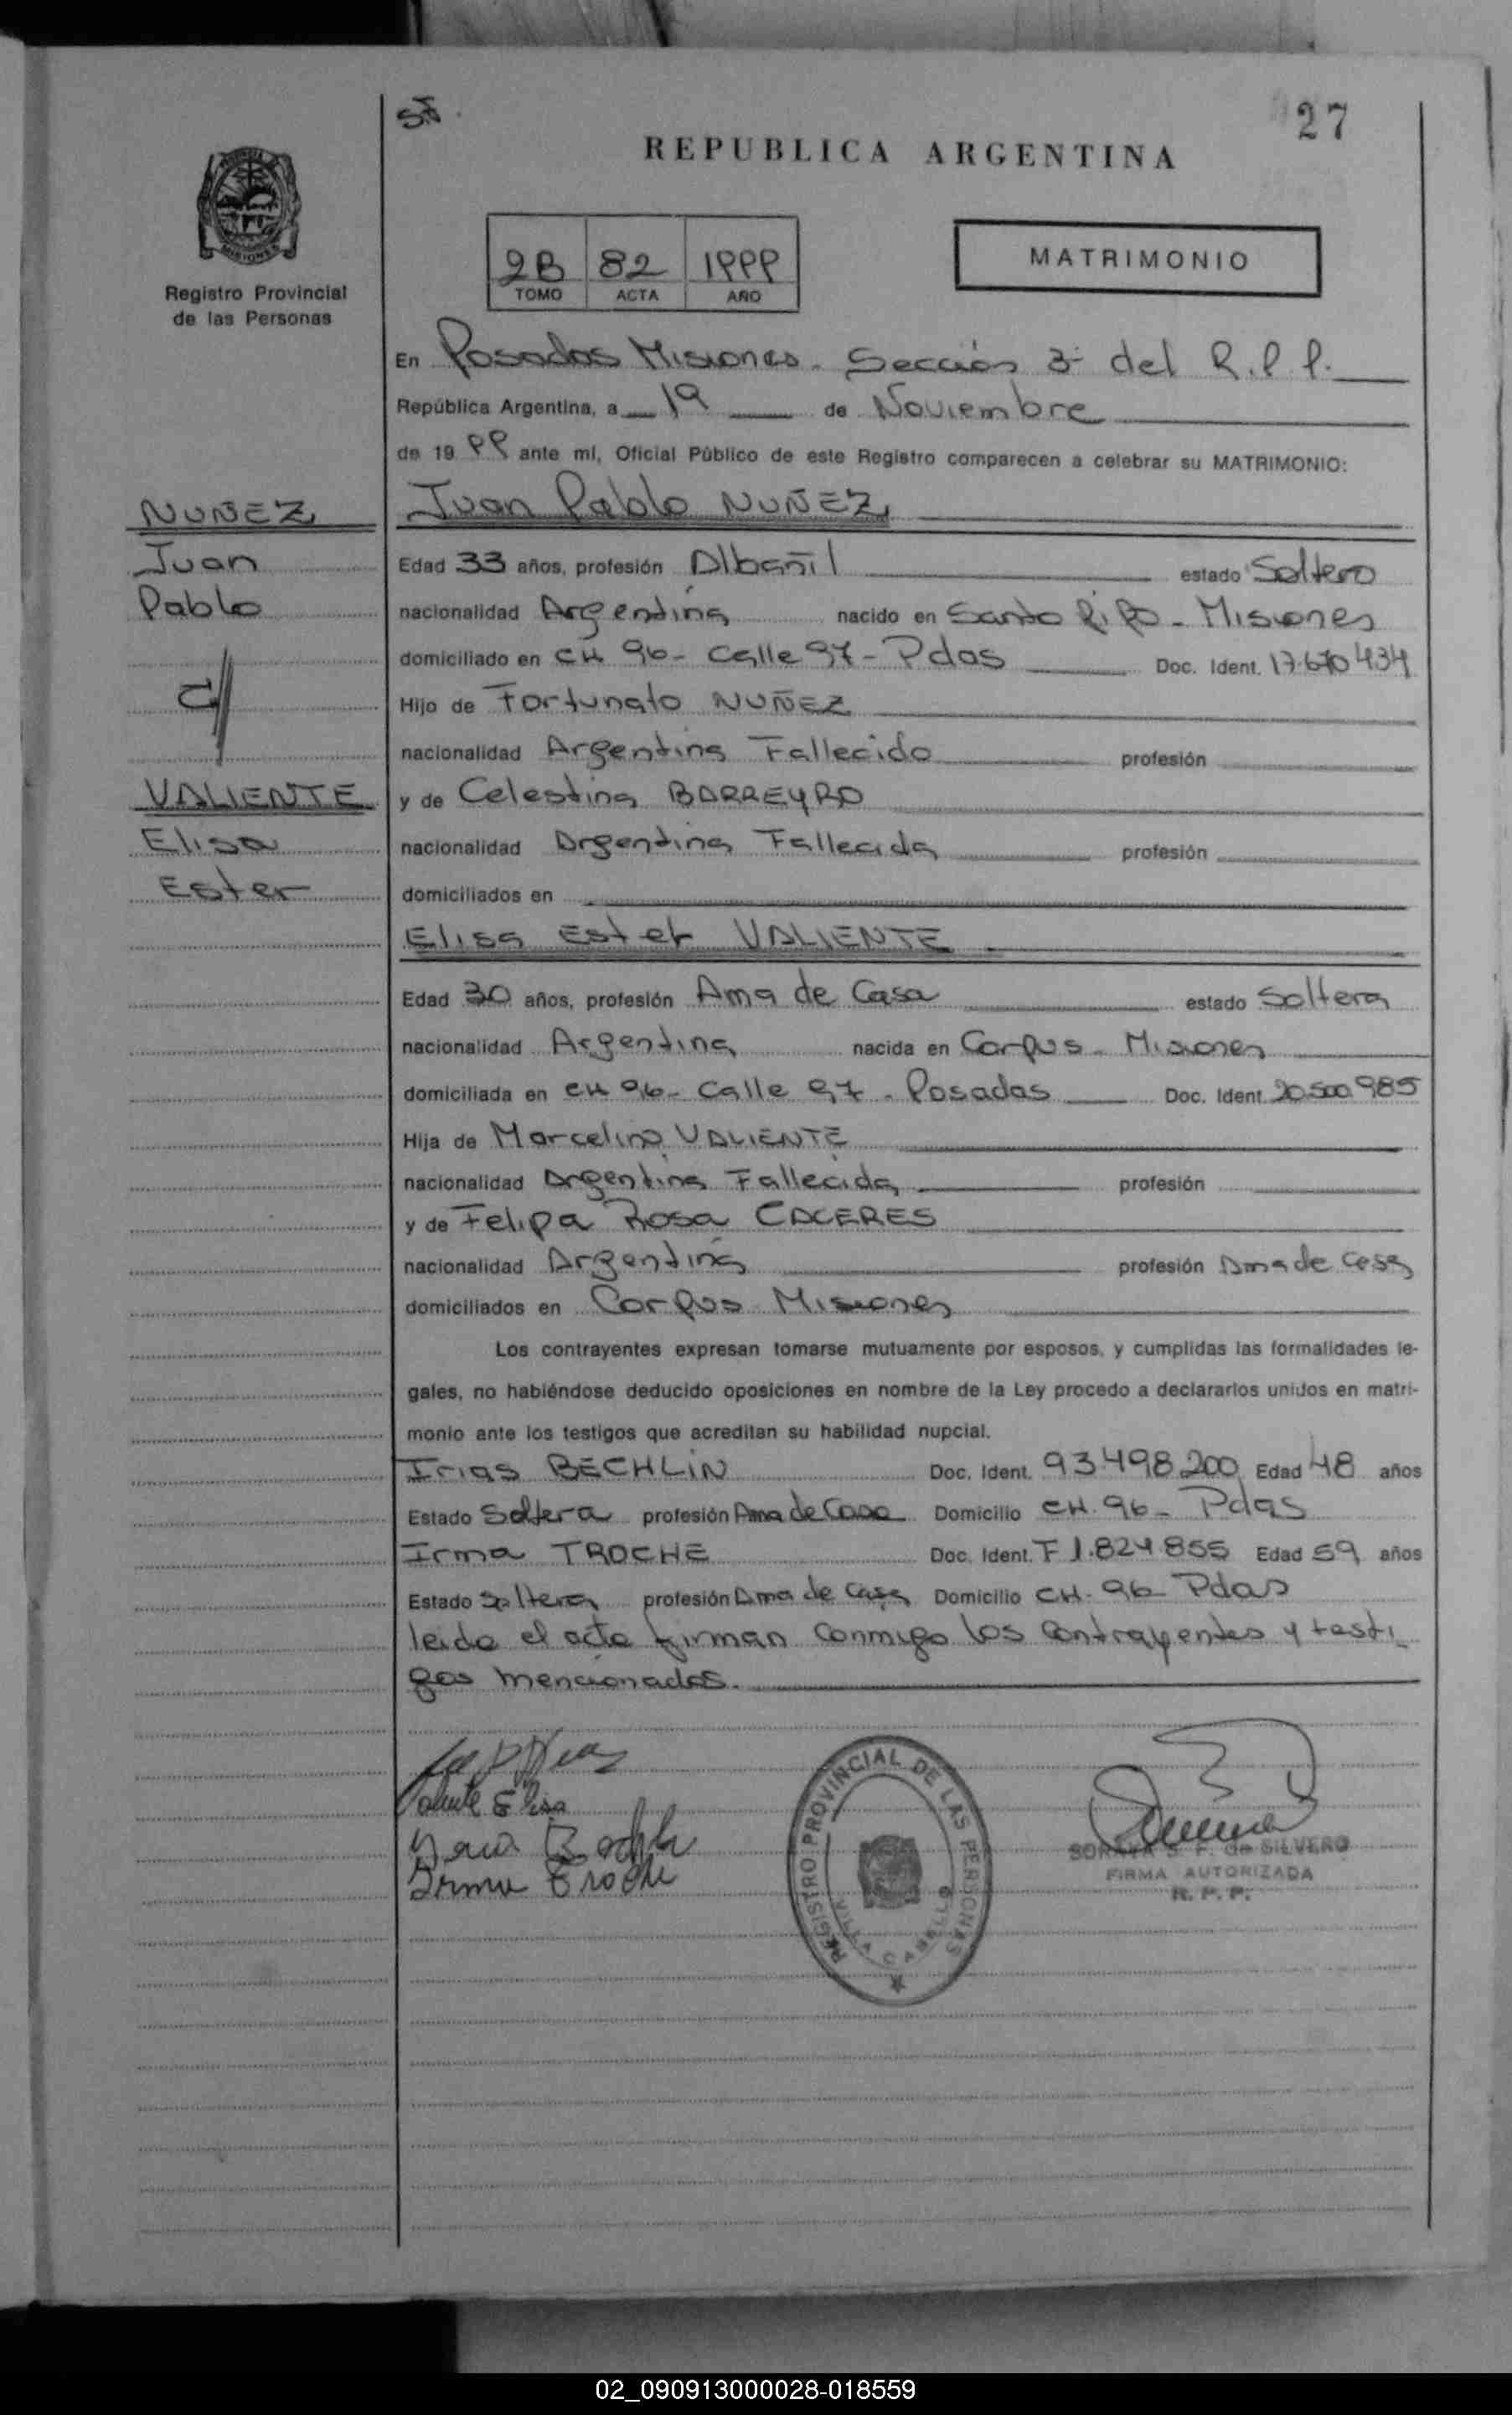 27
REPUBLICA ARGENTINA
Registro Provincial
de las Personas
2B 82 1999
TOMO ACTA AÑO
MATRIMONIO
En Posadas Misiones - Sección 3ª del R.P.P.
República Argentina, a 19 de Noviembre
de 19 99 ante mí, Oficial Público de este Registro comparecen a celebrar su MATRIMONIO:
NUÑEZ
Juan
Pablo
Juan Pablo NUÑEZ
Edad 33 años, profesión Albañil estado Soltero
nacionalidad Argentina nacido en Santo Pipo - Misiones
domiciliado en CH 96 - Calle 97 - Pdas Doc. Ident. 17.670434
Hijo de Fortunato NUÑEZ
nacionalidad Argentina Fallecido profesión
VALIENTE
Elisa
Ester
y de Celestina BARREYRO
nacionalidad Argentina Fallecida profesión
domiciliados en
Elisa Ester VALIENTE
Edad 30 años, profesión Ama de Casa estado Soltera
nacionalidad Argentina nacida en Corpus - Misiones
domiciliada en CH 96 - Calle 97 - Posadas Doc. Ident. 20.500.985
Hija de Marcelino VALIENTE
nacionalidad Argentina Fallecida profesión
y de Felipa Rosa CACERES
nacionalidad Argentina profesión Ama de Casa
domiciliados en Corpus Misiones
Los contrayentes expresan tomarse mutuamente por esposos, y cumplidas las formalidades le-
gales, no habiéndose deducido oposiciones en nombre de la Ley procedo a declararlos unidos en matri-
monio ante los testigos que acreditan su habilidad nupcial.
Irias BECHLIN Doc. Ident. 93498.200 Edad 48 años
Estado Soltera profesión Ama de Casa Domicilio CH. 96 - Pdas
Irma TROCHE Doc. Ident. F 1.824 855 Edad 59 años
Estado Soltera profesión Ama de Casa Domicilio CH. 96 - Pdas
leida el acta firman conmigo los Contrayentes y testi
gos mencionados.
Elisa
Irma Troche
REGISTRO PROVINCIAL DE LAS PERSONAS
VILLA CABELLO
SORAYA S. F. de SILVERO
FIRMA AUTORIZADA
R. P. P.
02_090913000028-018559